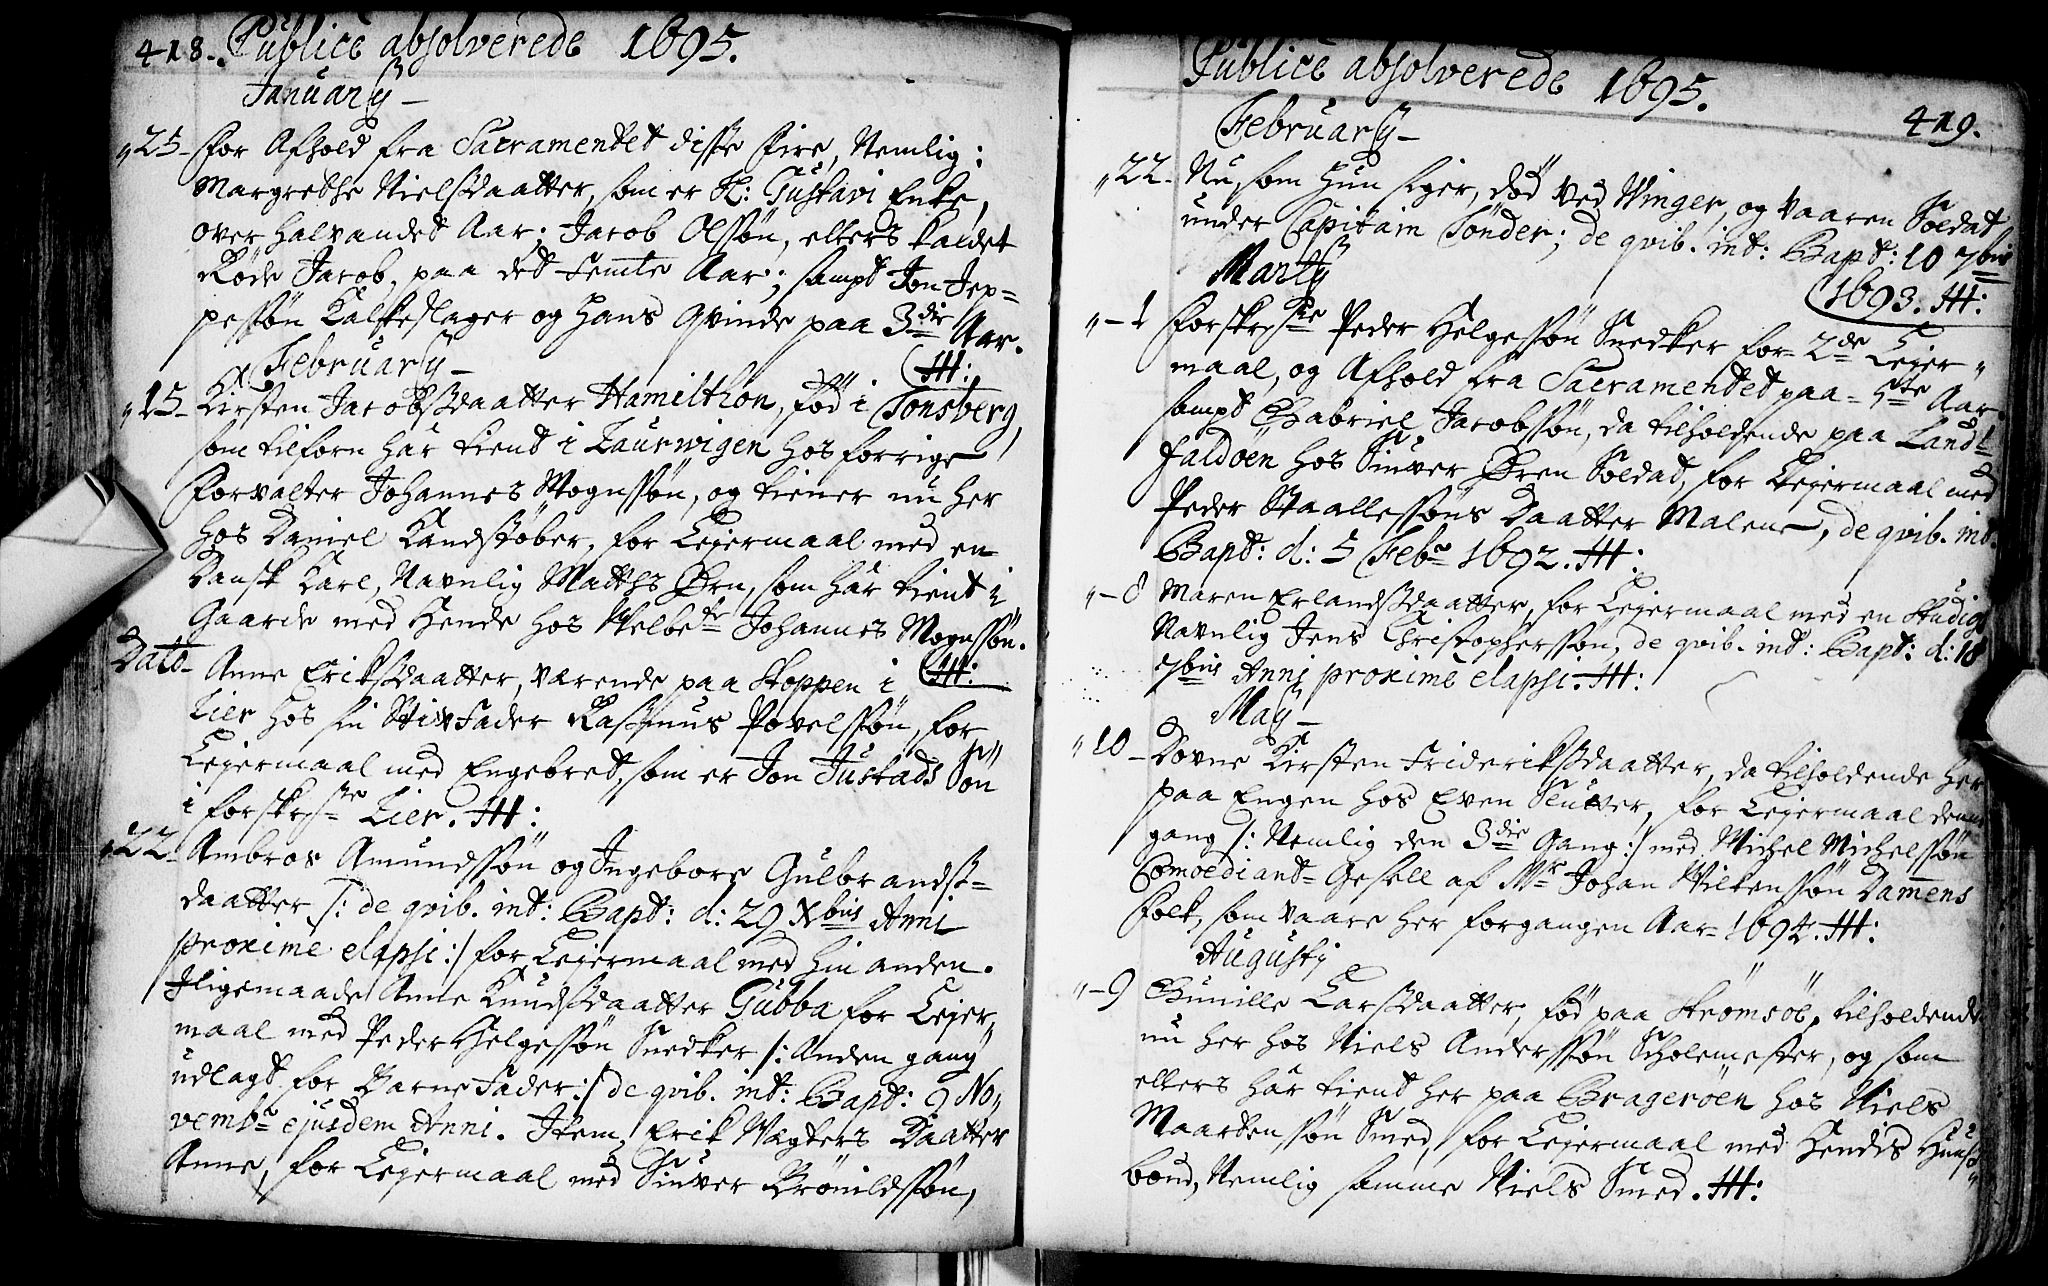 418. Publicè absolverede 1695.
Januarij
25. For Afhold fra Sacramentet disse Fire, Nemlig:
Margrethe Nielsdaatter, som er Sl: Gustavi Enke,
over halvandet Aar; Jacob Olssøn, ellers kaldet
Røde Jacob, paa det femte Aar; sampt Jon Jep=
pessøn Kalkeslager og hans Qvinde paa 3die Aar.
Februarij
HH:
15. Kirsten Jacobsdaatter Hamilthon, fød i Tonsberg,
som tilforn har tient i Laurwigen hos forrige
Forvalter Johannes Mognssøn, og tiener nu her
hos Daniel Kandstøber, for Lejermaal med en
Dansk Karl, Navnlig Matths Ørn, som har tient i
Gaarde med Hende hos Welbete Johannes Mognssøn.
HH:
Dato. Anne Eriksdaatter, værende paa Stoppen i
Lier hos sin Stivfader Rasmus Povelssøn, for
Lejermaal med Engebret, som er Jon Justads Søn
i forskrefne Lier. HH:
22. Ambros Amundssøn og Ingebore Gulbrands=
daatter /: de qvib. int: Bapt: d: 29 Xbris Anni
proxime elapsi :/ for Lejermaal med hin anden.
Iligemaade Anne Knudsdaatter Gubba for Lejer=
maal med Peder Helgessøn Snedker /: Anden gang
udlagt for Barnefader :/ de qvib. int: Bapt: 9 No=
vembr ejusdem Anni. Item, Erik Wegters Daatter
Anne, for Lejermaal med Siuver Brønildssøn,
Publicè absolverede 1695.
419.
Februarij
22. Nu, som hun siger, død ved Winger, og vaaren Soldat
under Capitain Tønder; de qvib. int: Bapt: 10 7bris
1693. HH:
Martij
1 Forskrefne Peder Helgessøn Snedker for 2de Lejer=
maal, og Afhold fra Sacramentet paa 5te Aar.
sampt Gabriel Jacobssøn, da tilholdende paa Land=
faldöen hos Siuver Ören Soldat, for Lejermaal med
Peder Staallessøns Daatter Malene, de qvib. int.
Bapt: d: 5 Febr 1692. HH:
8 Maren Erlandsdaatter, for Lejermaal med en Studios
Navnlig Jens Christopherssøn, de qvib. int: Bapt: d: 18
7bris Anni proxime elapsi. HH:
Maij
10 Dovne Kirsten Frideriksdaatter, da tilholdende her
paa Engen hos Even Slutter, for Lejermaal denne
gang /: Nemlig den 3die Gang :/ med Michel Michelssøn
Comoediant-Gesell af Mr Johan Wilkenssøn Damens
Folk, som vaare her forgangen Aar 1694. HH:
Augustij
9 Gunille Larsdaatter, fød paa Strömsöe, tilholdende
nu her hos Niels Anderssøn Scholemester, og som
ellers har tient her paa Brageröen hos Niels
Maartenssøn Smed, for Lejermaal med Hendis Huus=
bond, Nemlig samme Niels Smed. HH: